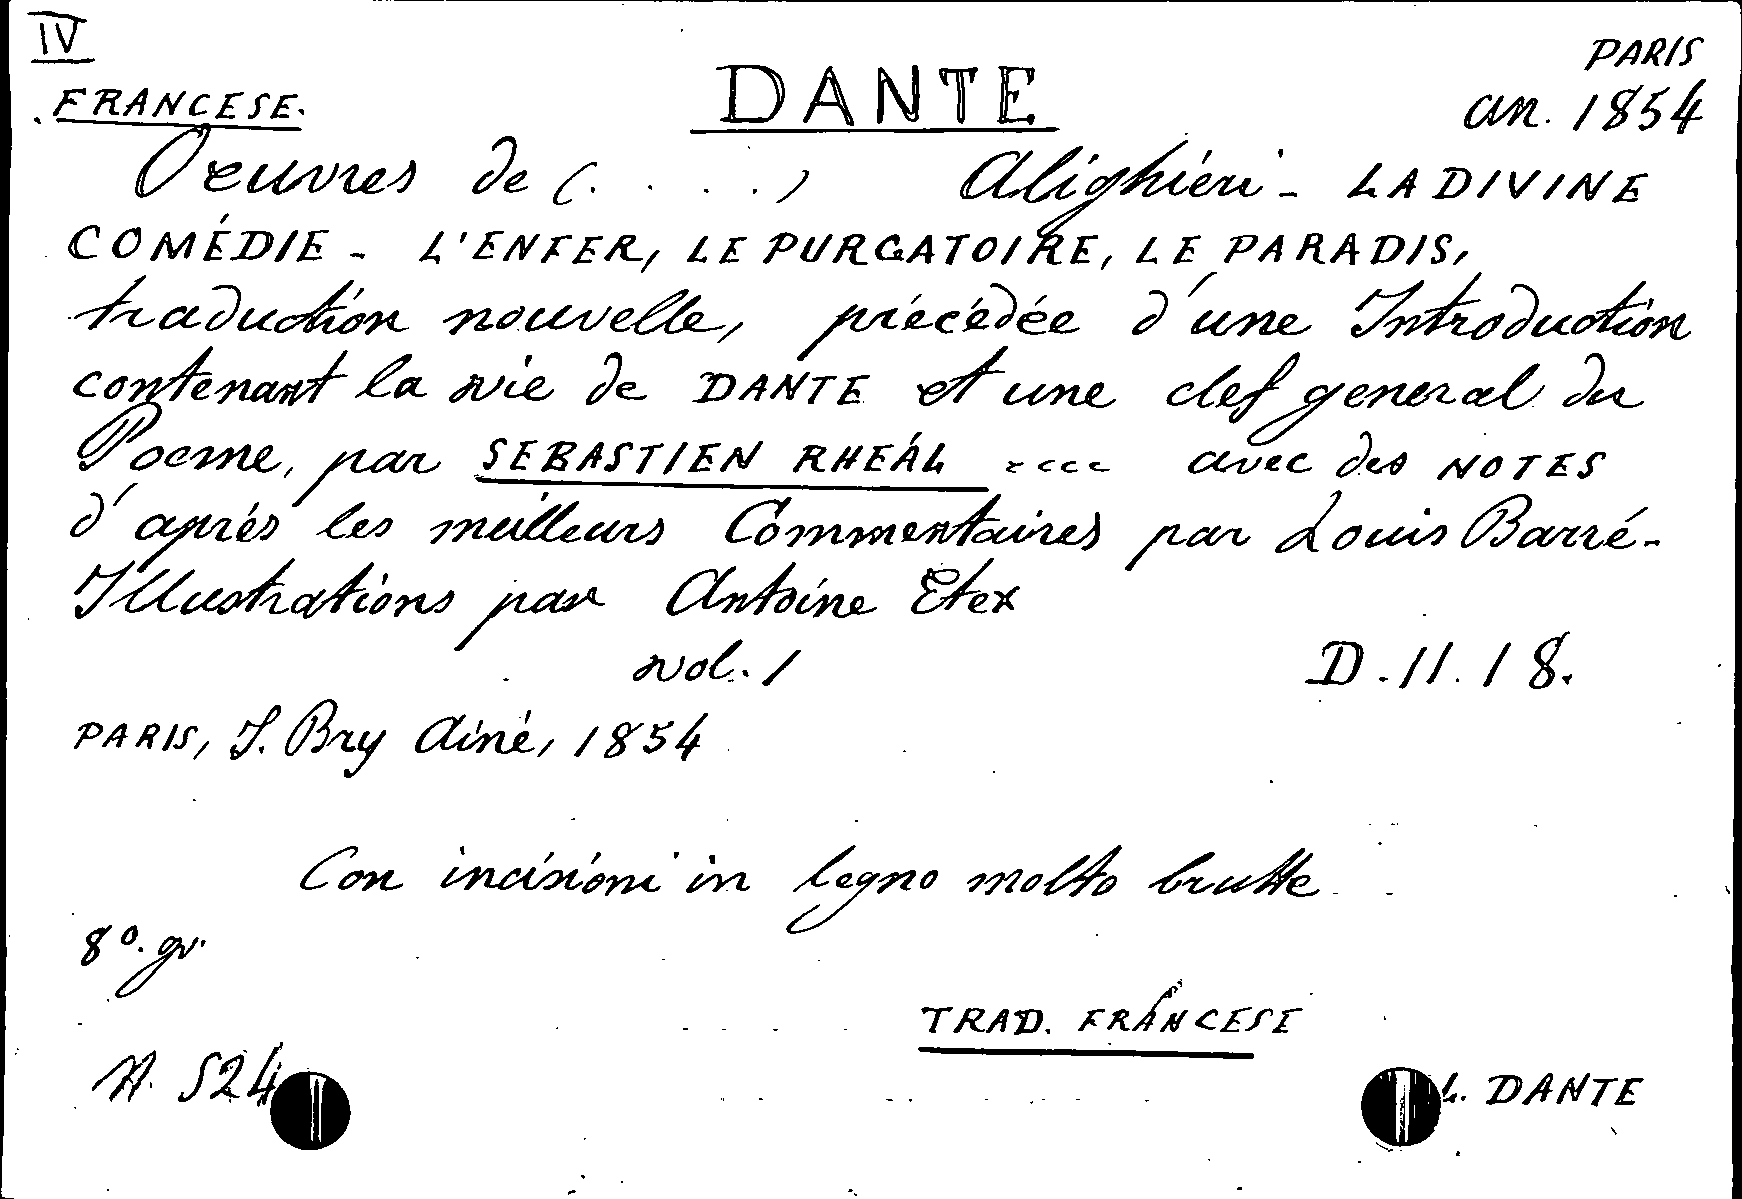 IV
PARIS
FRANCESE.
DANTE
an. 1854
Oeuvres de (. . . .) Alighiéri - LA DIVINE
COMÉDIE - L'ENFER, LE PURGATOIRE, LE PARADIS,
traduction nouvelle, précédée d'une Introduction
contenant la vie de DANTE et une clef general du
Poeme, par SEBASTIEN RHEÁL .... avec des NOTES
d'aprés les meilleurs Commentaires par Louis Barré-
Illustrations par Antoine Etex
vol. 1
D. 11. 18.
PARIS, J. Bry Ainé, 1854
Con incisioni in legno molto brutte
8°. gr.
TRAD. FRANCESE
N. 524
L. DANTE